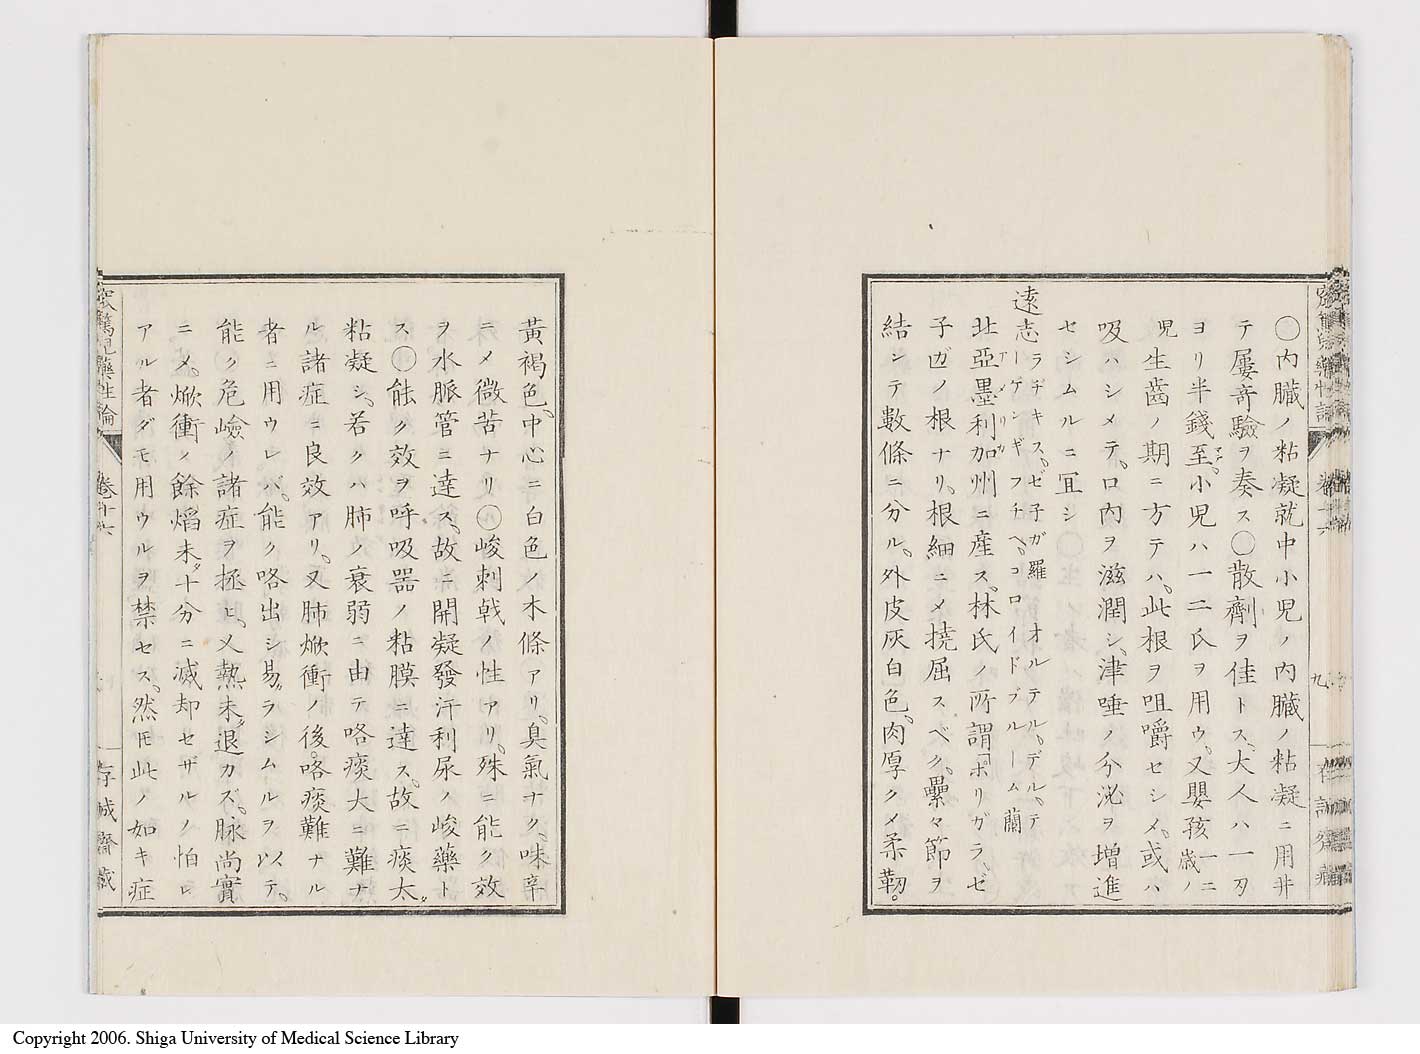 〇内臓ノ粘凝就中小児ノ内臓ノ粘凝ニ用井
テ屢竒驗ヲ奏ス〇散劑ヲ佳トス、大人ハ一刄
ヨリ半錢至マデ小児ハ一二氏ヲ用ウ、又嬰孩一二歳ノ
児生齒ノ期ニ方テハ、此根ヲ咀嚼セシメ、或ハ
吸ハシメテ、口内ヲ滋潤シ、津唾ノ分泌ヲ増進
セシムルニ宜シ
遠志ラヂキス、ゼ子ガ羅 オルテル、デル、テーゲンギフチヘ、コロイドブルーム蘭
北亞墨利加アメリカ州ニ産ス、林氏ノ所謂「ポリガラ、ゼ
子ガノ根ナリ、根細ニメ撓屈スベク、纍々節ヲ
結シテ數條ニ分ル、外皮灰白色、肉厚クメ柔靱。
黃褐色、中心ニ白色ノ木條アリ、臭氣ナク、味辛
ニメ微苦ナリ〇峻刺戟ノ性アリ、殊ニ能ク效
ヲ水脈管ニ達ス、故ニ開凝發汗利尿ノ峻藥ト
ス〇能ク效ヲ呼吸噐ノ粘膜ニ達ス、故ニ痰太ダ
粘凝シ、若クハ肺ノ衰弱ニ由テ咯痰大ニ難ナ
ル諸症ニ良效アリ、又肺焮衝ノ後、咯痰難ナル
者ニ用ウレバ、能ク咯出シ易ラシムルヲ以テ、
能ク危嶮ノ諸症ヲ拯ヒ、又熱未ダ退カズ、脉尚實
ニメ、焮衝ノ餘焰未ダ十分ニ滅却セザルノ怕レ
アル者ダモ用ウルヲ禁セス、然𪜈此ノ如キ症
窊篤児藥性論
卷十六
九
存誠齋藏